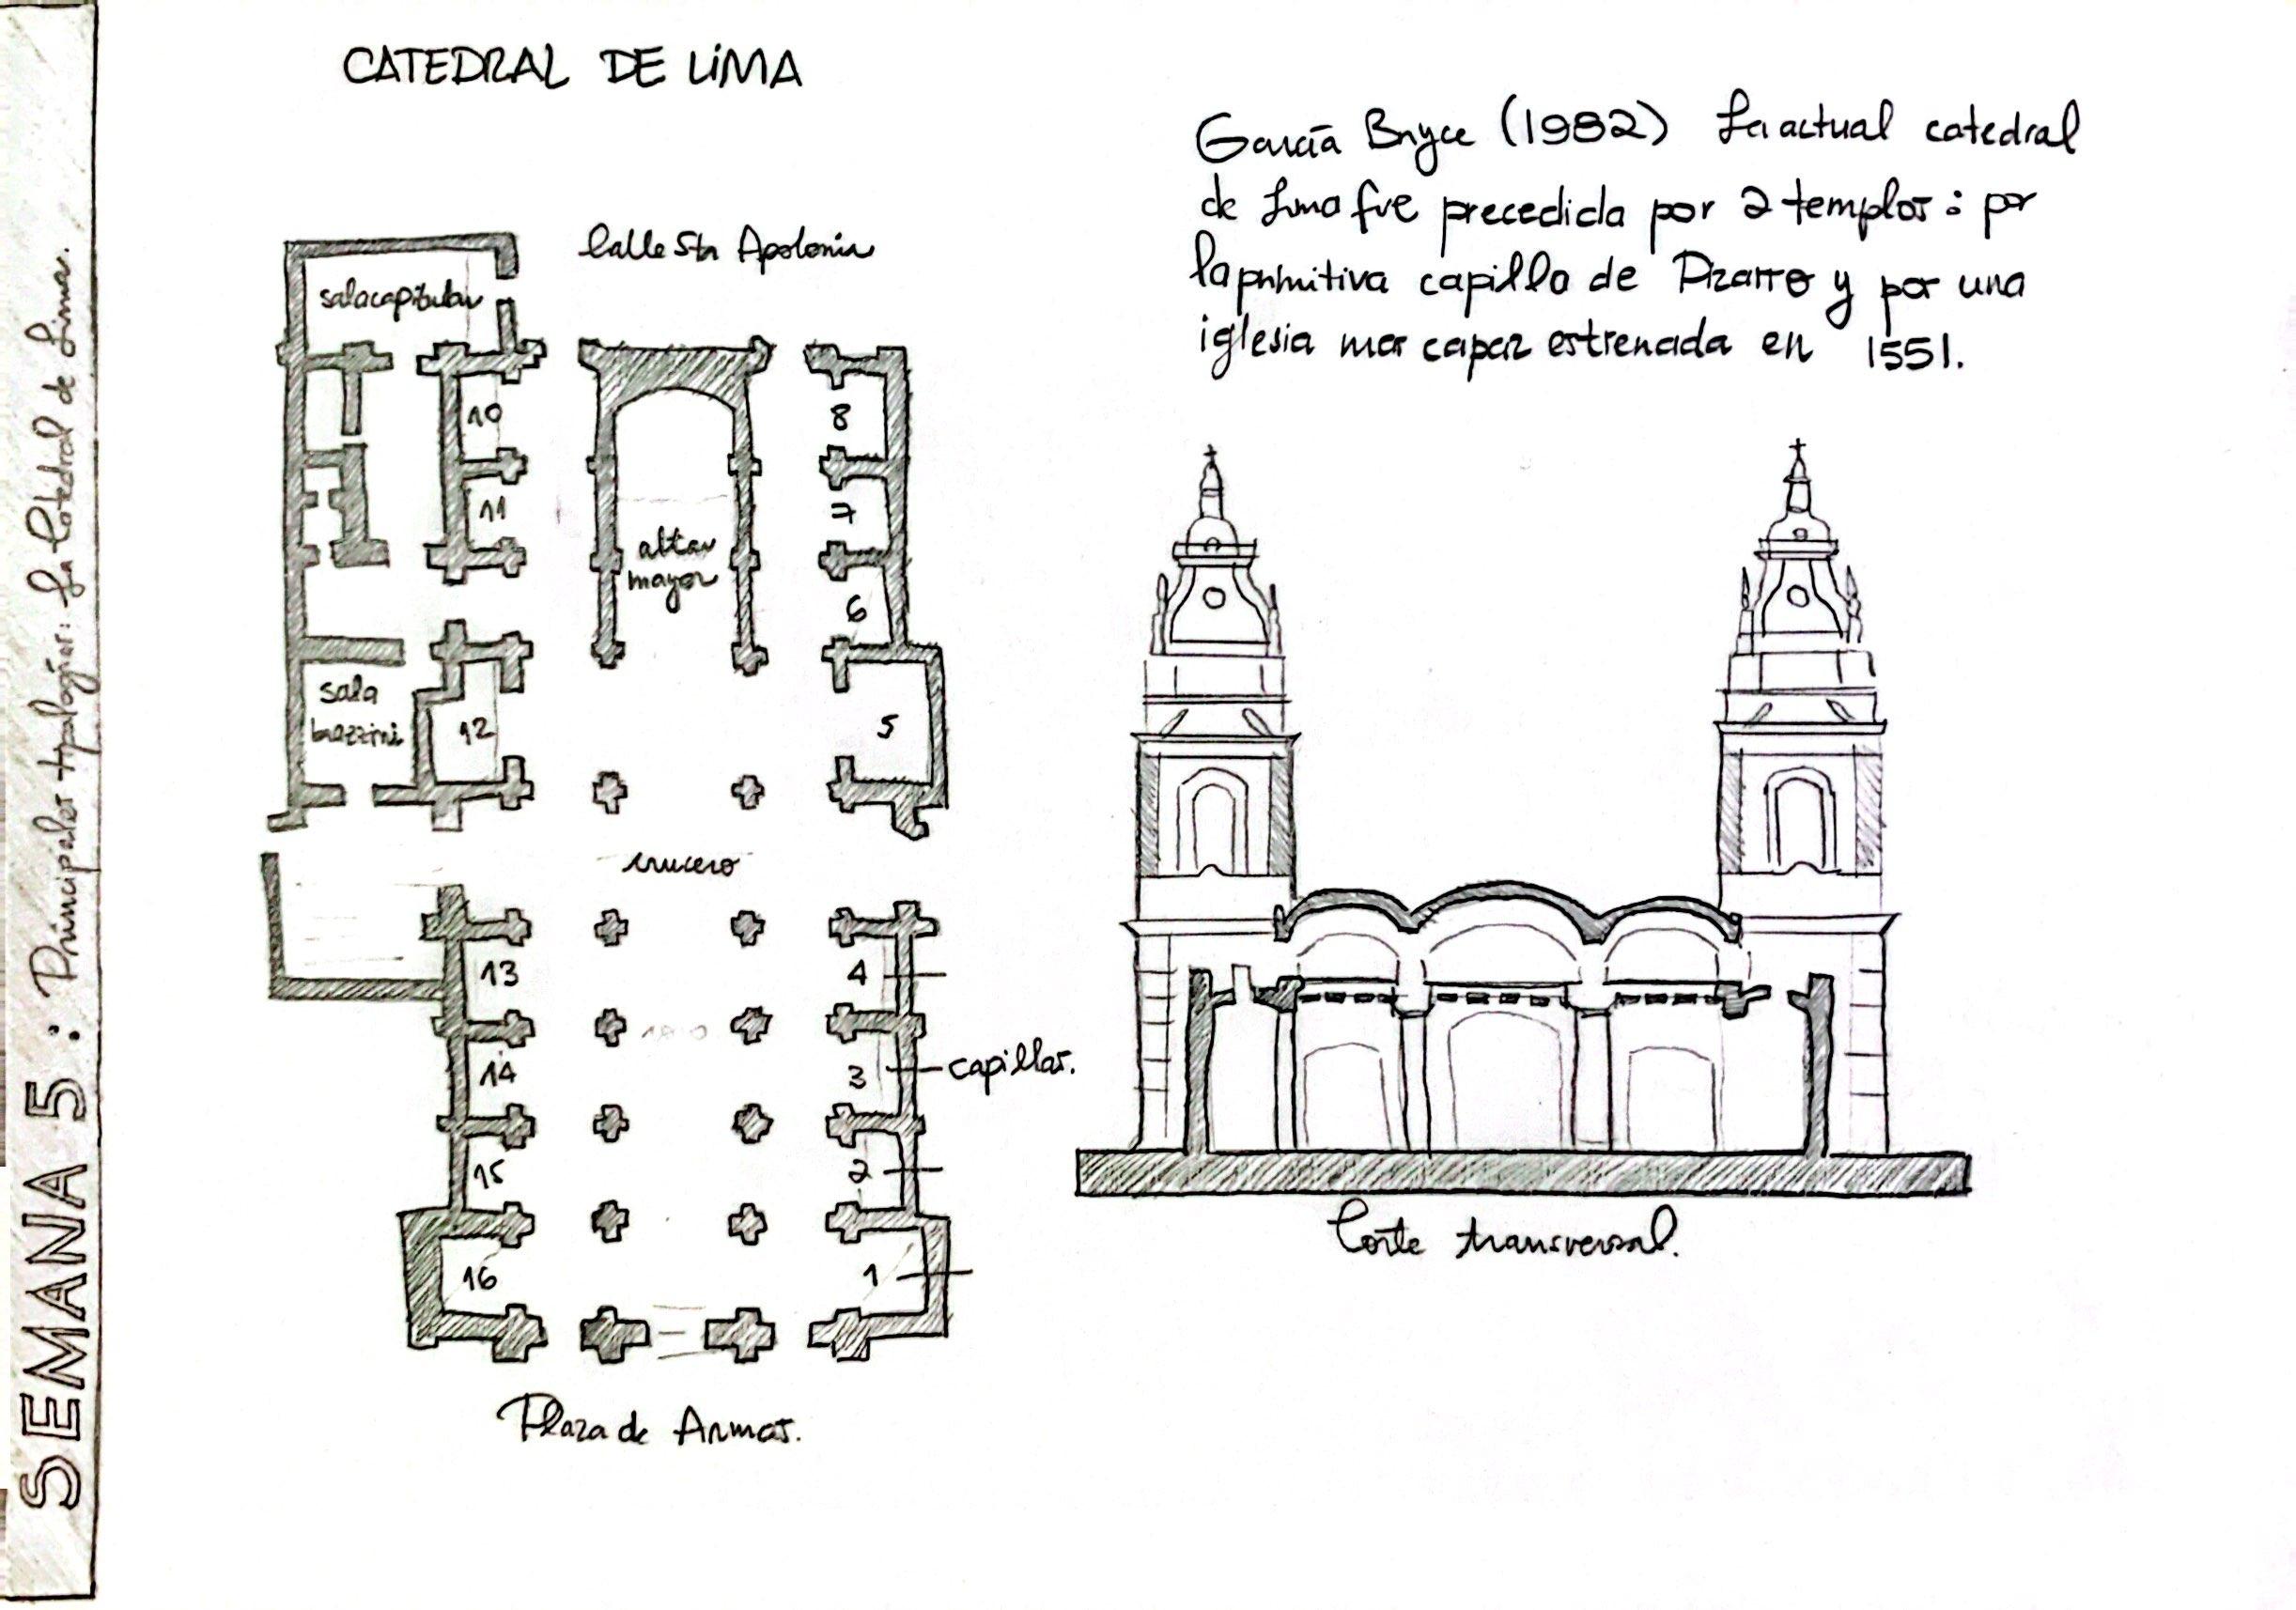 SEMANA 5: Principales tipologías: La Catedral de Lima.
CATEDRAL DE LiMA
García Bryce (1982) La actual catedral
de Lima fue precedida por 2 templos: por
la primitiva capilla de Pizarro y por una
iglesia mas capaz estrenada en 1551.
Calle Sta Apolonia
sala capitular
10
8
11
7
altar
mayor
6
sala
bazzini
12
5
crucero
13
4
14
3
capillas.
15
2
16
1
Plaza de Armas.
Corte transversal.